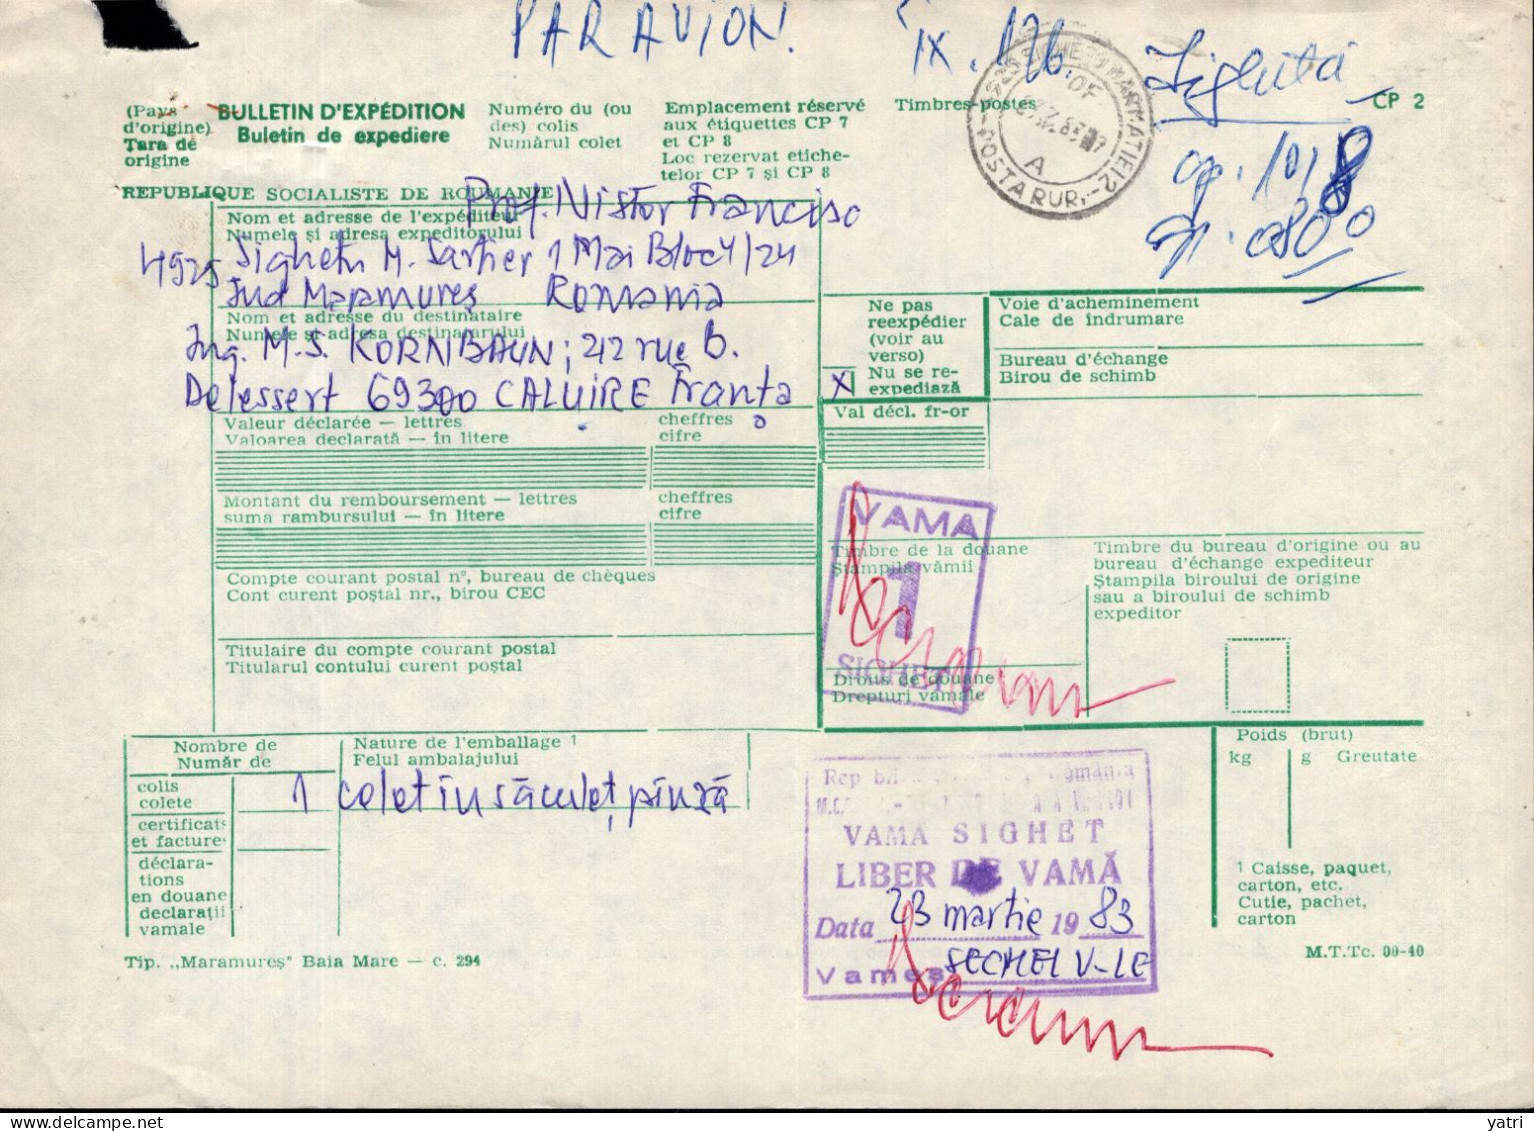 PAR AVION.
IX. 126.
(Pays d'origine)
Tara de origine
BULLETIN D'EXPÉDITION
Buletin de expediere
Numéro du (ou des) colis
Numărul colet
Emplacement réservé aux étiquettes CP 7 et CP 8
Loc rezervat etichetelor CP 7 și CP 8
Timbres-postes
CP 2
POSTA RUR.
A
REPUBLIQUE SOCIALISTE DE ROUMANIE
Nom et adresse de l'expéditeur
Numele și adresa expeditorului
Prof. Nistor Francisc
4925 Sighetu M. Sartier 1 Mai Bloc 4/24
Jud Maramureș Romania
Nom et adresse du destinataire
Numele și adresa destinatarului
Ing. M.S. KORNBAUN; 212 rue B.
Delessert 69300 CALUIRE Franta
Ne pas reexpédier (voir au verso)
Nu se re-expediază
X
Voie d'acheminement
Cale de îndrumare
Bureau d'échange
Birou de schimb
Valeur déclarée — lettres
Valoarea declarată — în litere
cheffres
cifre
Val décl. fr-or
Montant du remboursement — lettres
suma rambursului — în litere
cheffres
cifre
VAMA
1
SIGHET
Timbre de la douane
Ștampila vămii
Timbre du bureau d'origine ou au
bureau d'échange expediteur
Ștampila biroului de origine
sau a biroului de schimb
expeditor
Compte courant postal n°, bureau de chèques
Cont curent poștal nr., birou CEC
Titulaire du compte courant postal
Titularul contului curent poștal
Droits de douane
Drepturi vamale
Nombre de
Număr de
Nature de l'emballage 1
Felul ambalajului
colis
colete
1
colet în săculeț pînză
certificats
et factures
déclara-
tions
en douane
declarații
vamale
Poids (brut)
kg g Greutate
VAMA SIGHET
LIBER DE VAMĂ
Data 23 martie 1983
Vameș SECHEL V-LE
1 Caisse, paquet,
carton, etc.
Cutie, pachet,
carton
Tip. „Maramureș" Baia Mare — c. 294
M.T.Tc. 00-40
yatri